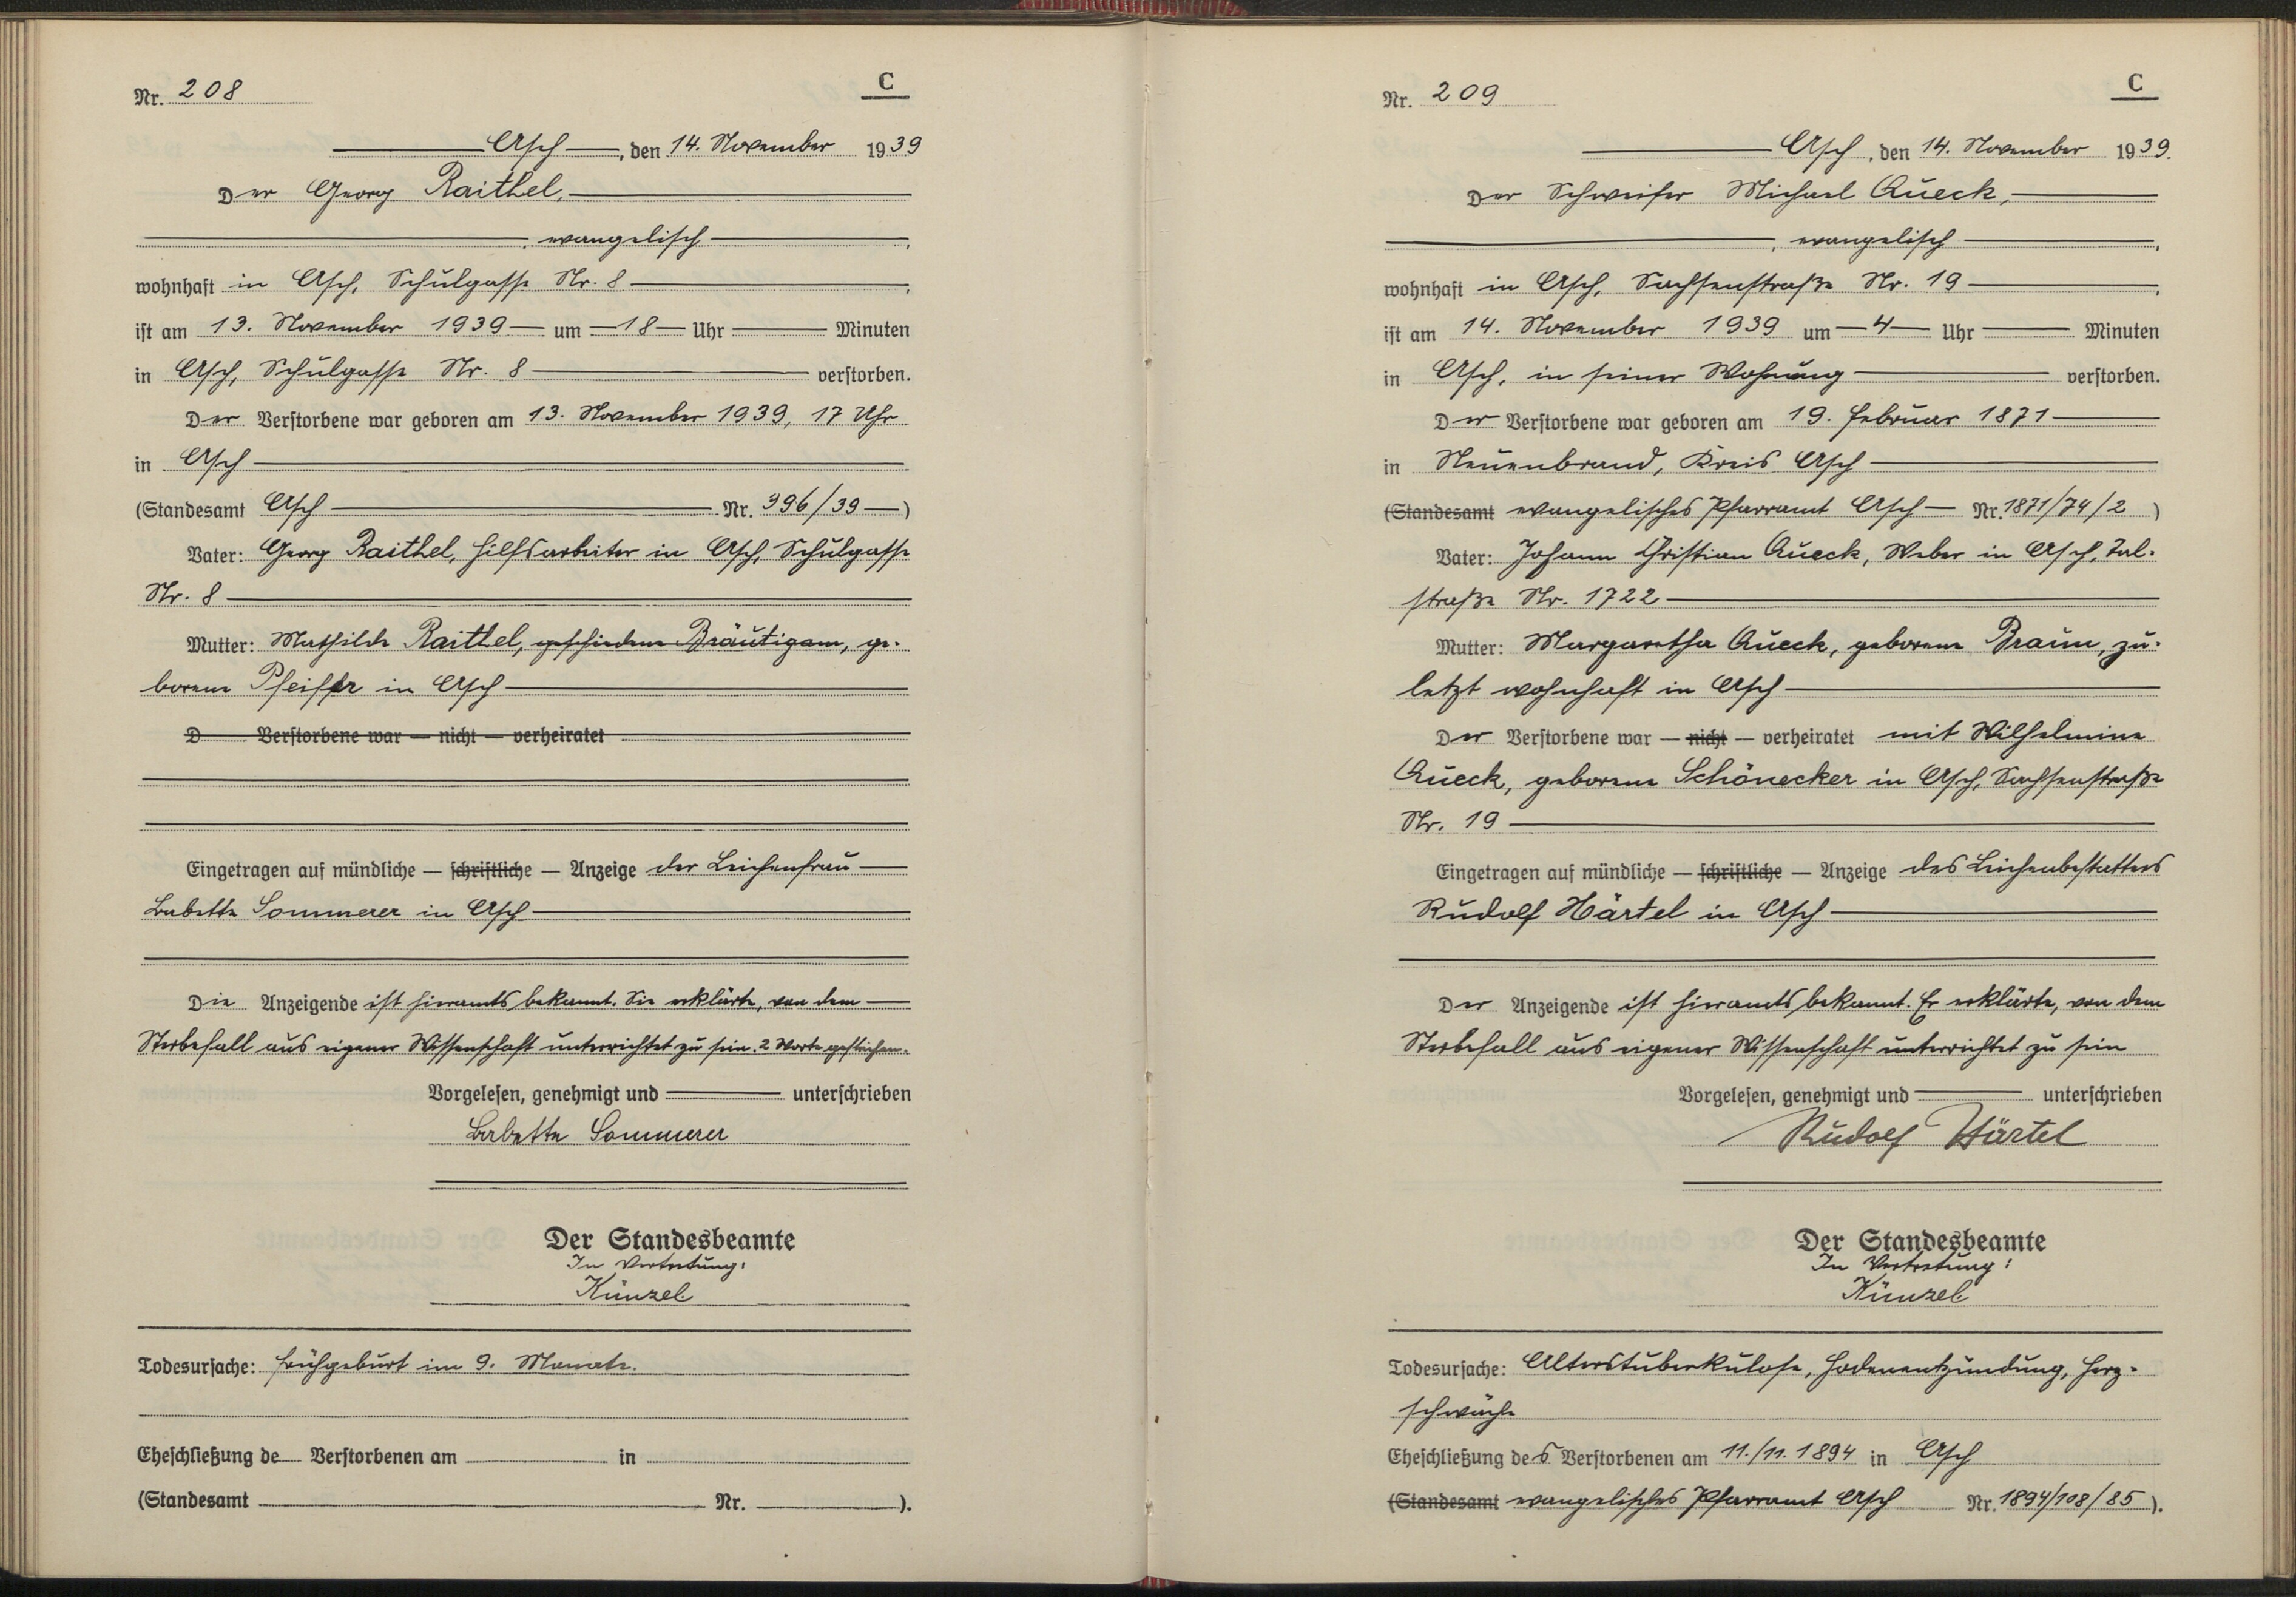 Nr. 208
C
Asch, den 14. November 1939
Der Georg Raithel,
, evangelisch,
wohnhaft in Asch, Schulgasse Nr. 8,
ist am 13. November 1939 um 18 Uhr Minuten
in Asch, Schulgasse Nr. 8 verstorben.
Der Verstorbene war geboren am 13. November 1939, 17 Uhr
in Asch
(Standesamt Asch Nr. 396/39)
Vater: Georg Raithel, Hilfsarbeiter in Asch, Schulgasse
Nr. 8
Mutter: Mathilde Raithel, geschiedene Bräutigam, ge-
borene Pfeiffer in Asch
D Verstorbene war — nicht — verheiratet
Eingetragen auf mündliche — schriftliche — Anzeige der Leichenfrau
Babette Sommerer in Asch
Die Anzeigende ist hieramts bekannt. Sie erklärte, von dem
Sterbefall aus eigener Wissenschaft unterrichtet zu sein. 2 Worte gestrichen.
Vorgelesen, genehmigt und unterschrieben
Babette Sommerer
Der Standesbeamte
In Vertretung:
Künzel
Todesursache: Frühgeburt im 9. Monate.
Eheschließung de Verstorbenen am in
(Standesamt Nr. ).
Nr. 209
C
Asch, den 14. November 1939.
Der Schweifer Michael Queck,
, evangelisch,
wohnhaft in Asch, Sachsenstraße Nr. 19,
ist am 14. November 1939 um 4 Uhr Minuten
in Asch, in seiner Wohnung verstorben.
Der Verstorbene war geboren am 19. Februar 1871
in Neuenbrand, Kreis Asch
(Standesamt evangelisches Pfarramt Asch Nr. 1871/74/2)
Vater: Johann Christian Queck, Weber in Asch, Tal-
straße Nr. 1722
Mutter: Margaretha Queck, geborene Braun, zu-
letzt wohnhaft in Asch
Der Verstorbene war — nicht — verheiratet mit Wilhelmine
Queck, geborene Schönecker in Asch, Sachsenstraße
Nr. 19
Eingetragen auf mündliche — schriftliche — Anzeige des Leichenbestatters
Rudolf Härtel in Asch
Der Anzeigende ist hieramts bekannt. Er erklärte, von dem
Sterbefall aus eigener Wissenschaft unterrichtet zu sein
Vorgelesen, genehmigt und unterschrieben
Rudolf Härtel
Der Standesbeamte
In Vertretung:
Künzel
Todesursache: Alterstuberkulose, Hodenentzündung, Herz-
schwäche
Eheschließung des Verstorbenen am 11./11. 1894 in Asch
(Standesamt evangelisches Pfarramt Asch Nr. 1894/108/85).